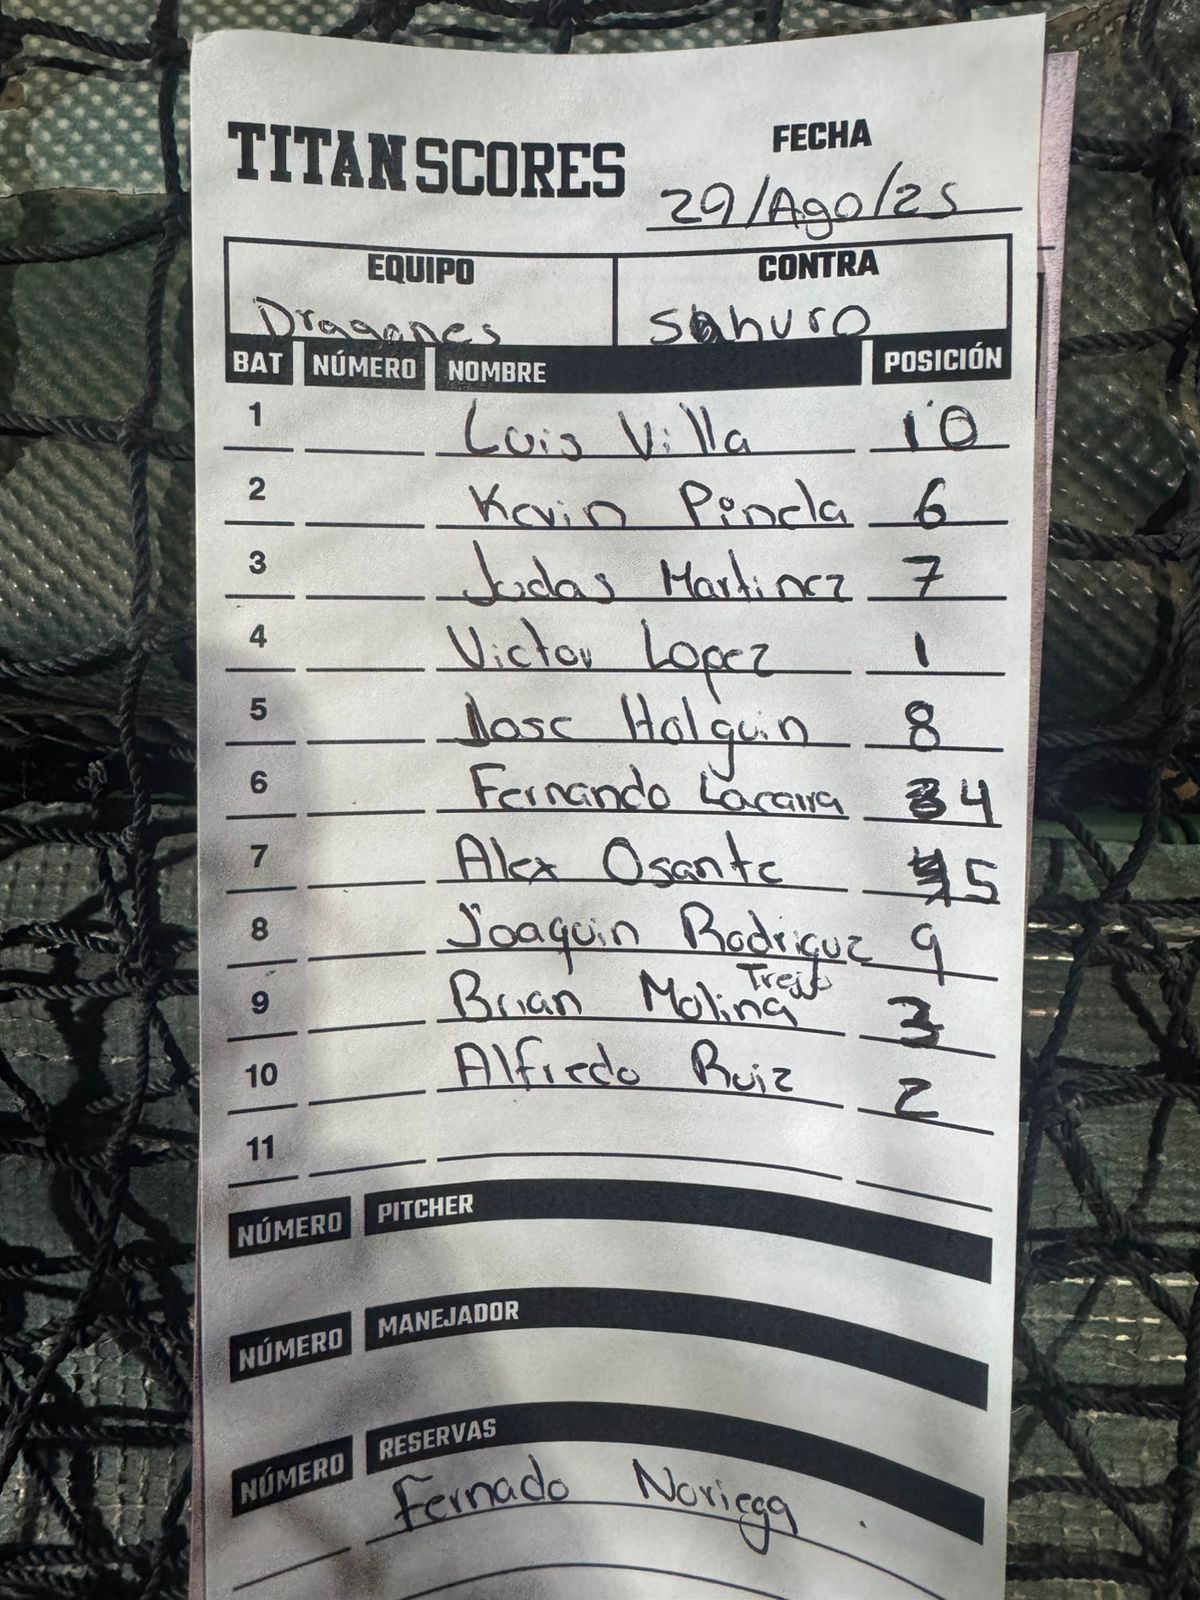 TITAN SCORES
FECHA
29/Ago/25
EQUIPO CONTRA
Dragones Sahuro
BAT NÚMERO NOMBRE POSICIÓN
1 Luis Villa 10
2 Kevin Pineda 6
3 Judas Martinez 7
4 Victor Lopez 1
5 Jose Holguin 8
6 Fernando Lacarra 4
7 Alex Osante 5
8 Joaquin Rodriguez 9
Trejo
9 Brian Molina 3
10 Alfredo Ruiz 2
11
NÚMERO PITCHER
NÚMERO MANEJADOR
NÚMERO RESERVAS
Fernado Noriega